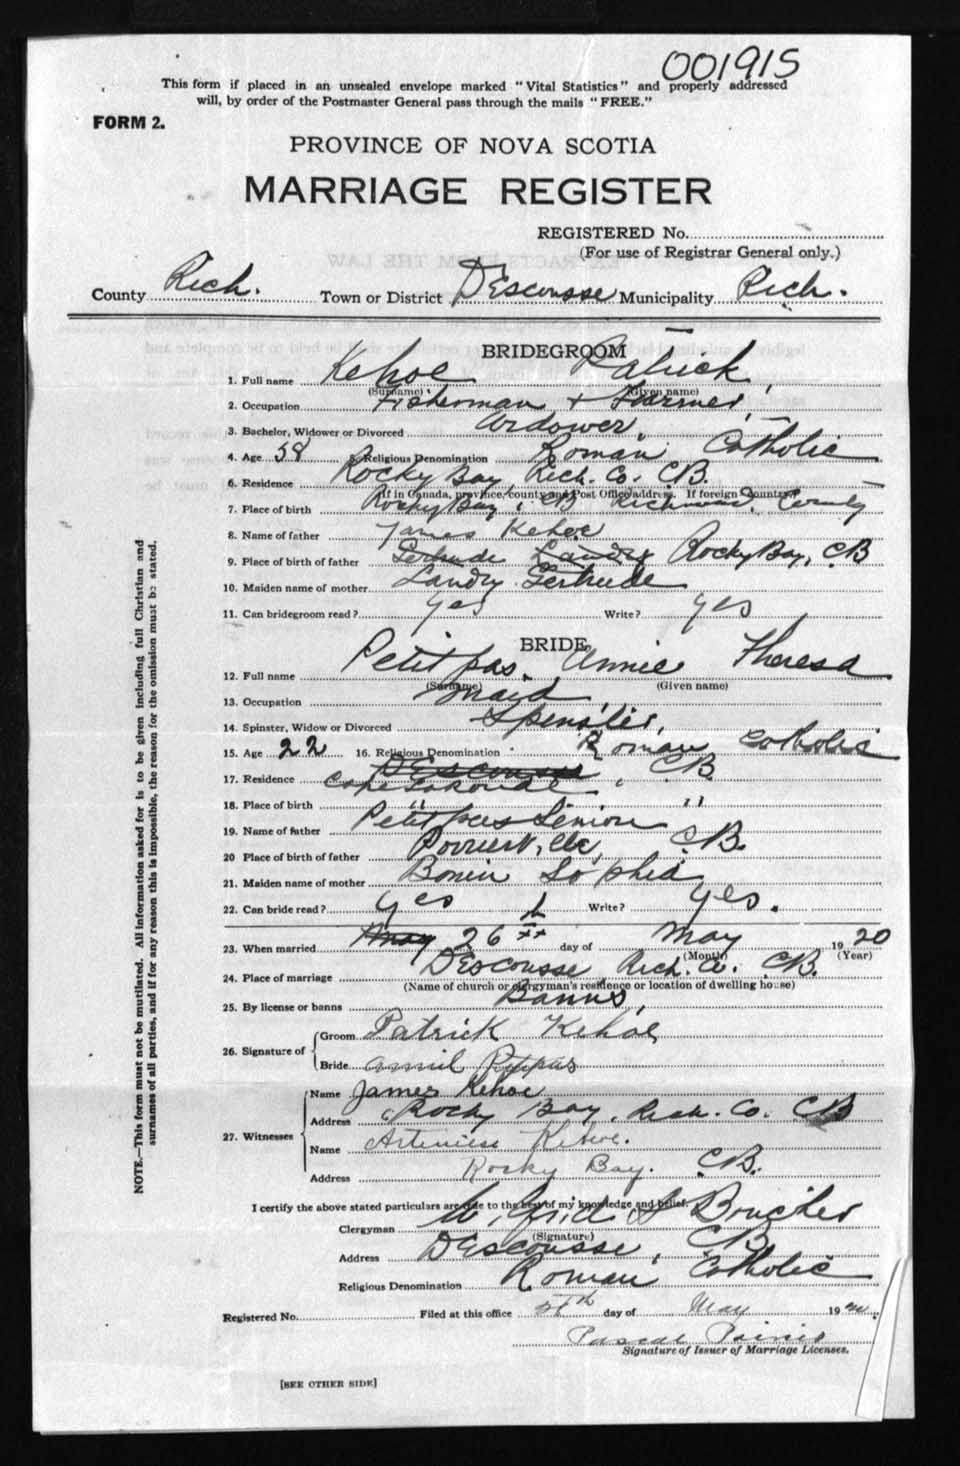 001915
This form if placed in an unsealed envelope marked "Vital Statistics" and properly addressed
will, by order of the Postmaster General pass through the mails "FREE."
FORM 2.
PROVINCE OF NOVA SCOTIA
MARRIAGE REGISTER
REGISTERED No.
(For use of Registrar General only.)
County Rich. Town or District D'Escousse Municipality Rich.
BRIDEGROOM
1. Full name Kehoe Patrick
(Surname) (Given name)
2. Occupation Fisherman + Farmer
3. Bachelor, Widower or Divorced Widower
4. Age 58 5. Religious Denomination Roman Catholic
6. Residence Rocky Bay, Rich. Co. CB.
(If in Canada, province, county and Post Office address. If foreign Country)
7. Place of birth Rocky Bay, CB Richmond County
8. Name of father James Kehoe
9. Place of birth of father Gertrude Landry Rocky Bay, CB
10. Maiden name of mother Landry Gertrude
11. Can bridegroom read? yes Write? yes
BRIDE
12. Full name Petitpas, Annie Theresa
(Surname) (Given name)
13. Occupation maid
14. Spinster, Widow or Divorced Spinster,
15. Age 22 16. Religious Denomination Roman Catholic
17. Residence D'Escousse CB
18. Place of birth " "
19. Name of father Petitpas
20 Place of birth of father CB.
21. Maiden name of mother Sophia
22. Can bride read? yes Write? yes.
23. When married May 26th day of May 1920
(Month) (Year)
24. Place of marriage D'Escousse, Rich. Co. CB.
(Name of church or clergyman's residence or location of dwelling house)
25. By license or banns Banns,
26. Signature of Groom Patrick Kehoe
Bride Annie Ptpas
27. Witnesses Name James Kehoe
Address Rocky Bay, Rich. Co. CB
Name Kehoe.
Address Rocky Bay. CB.
I certify the above stated particulars are true to the best of my knowledge and belief.
Clergyman Boucher
(Signature)
Address D'Escousse, CB
Religious Denomination Roman Catholic
Registered No. Filed at this office day of May 19
Pascal Poirier
Signature of Issuer of Marriage Licenses.
[SEE OTHER SIDE]
NOTE.—This form must not be mutilated. All information asked for is to be given including full Christian and
surnames of all parties, and if for any reason this is impossible, the reason for the omission must be stated.